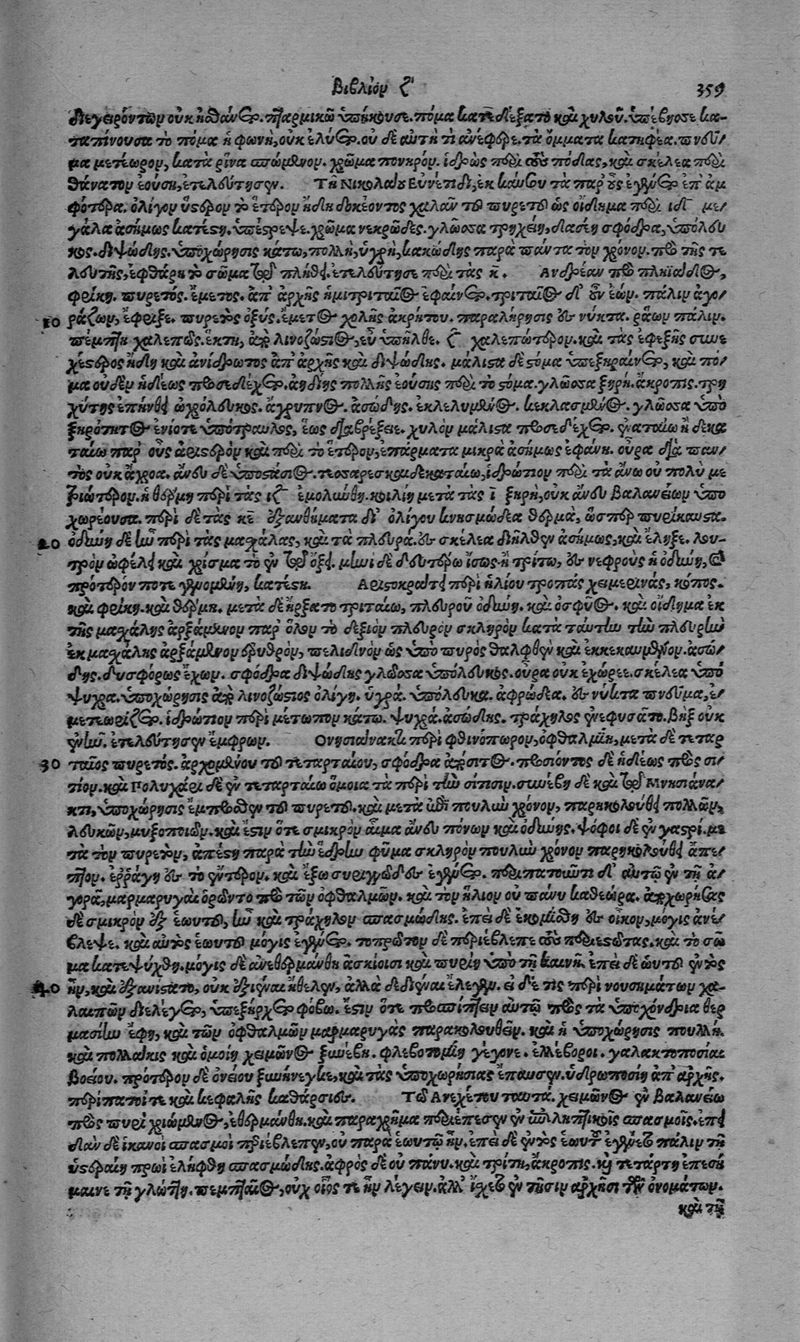 Βιβλίον ζ΄ 359
λεγειρόντων οὐκ ἠδύνατο. πταρμικῷ ὑπήκουσε. πόμα κατεδέξατο καὶ χυλοῦ. ὑπέβησε κα-
ταπίνουσα τὸ πόμα ἡ φωνὴ, οὐκ ἐλύετο. οὐδὲ αὐτὴ τι ἀνέφερε. τὰ ὄμματα κατηφέα. πνεῦ-
μα μετέωρον, κατὰ ῥῖνα σπώμενον. χρῶμα πονηρόν. ἱδρὼς περὶ τοὺς πόδας, καὶ σκέλεα περὶ
θάνατον ἐούσῃ, ἐτελεύτησεν. Τῇ Νικολάου Εὐνέπιδι, ἐκ καύσου τὰ παρ' οὖς ἐγένετο ἐπ' ἀμ
φότερα. ὀλίγον ὕστερον τὸ ἕτερον ἤδη δοκέοντος χαλᾶν τοῦ πυρετοῦ ὡς οἴδημα περὶ ιδ΄ με-
γάλα ἀσήμως κατέστη. ὑπέστρεψε. χρῶμα νεκρῶδες. γλῶσσα τρηχείη, δασείη σφόδρα, ὑπόλευ
κος. διψώδης. ὑποχώρησις κάτω, πολλὴ, ὑγρὴ, κακώδης παρὰ πάντα τὸν χρόνον. πρὸ τῆς τε
λευτῆς, ἐφθάρη τὸ σῶμα τῷ πλήθει. ἐτελεύτησε περὶ τὰς κ. Ἀνδρέαν πρὸ πληϊάδος,
φρίκη. πυρετός. ἔμετος. ἀπ' ἀρχῆς ἡμιτριταῖος ἐφαίνετο. τριταῖος δ' ἦν ἐών. πάλιν ἀγο-
10 ράζων, ἔφριξε. πυρετὸς ὀξύς. ἔμετος χολῆς ἀκρήτου. παραλήρησις ἐς νύκτα. ῥάων πάλιν.
πέμπτῃ χαλεπῶς. ἕκτῃ, ἀπὸ λινοζώστιος, εὖ ὑπῆλθε. ζ χαλεπώτερον. καὶ τὰς ἐφεξῆς συνε
χέστερος ἤδη καὶ ἀνίδρωτος ἀπ' ἀρχῆς καὶ διψώδης. μάλιστα δὲ στόμα ὑπεξηραίνετο, καὶ πό-
μα οὐδὲν ἡδέως προσεδέχετο. ἀηδίης πολλῆς ἐούσης περὶ τὸ στόμα. γλῶσσα ξηρή. ἄκροπις. τρη
χύτης ἐπήνθει ὠχρόλευκος. ἄγρυπνος. ἀσώδης. ἐκλελυμένος. κεκλασμένος. γλῶσσα ὑπὸ
ξηρότητος ἐνίοτε ὑπότραυλος, ἕως διαβρέξειε. χυλὸν μάλιστα προσεδέχετο. ἐναταίῳ ἢ δεκα
ταίῳ παρ' οὖς ἀριστερὸν καὶ περὶ τὸ ἕτερον, ἐπάρματα μικρὰ ἀσήμως ἐφάνη. οὖρα διὰ παν-
τὸς οὐκ ἄχροα. ἄνευ δὲ ὑποστάσιος. τεσσαρεσκαιδεκαταίῳ, ἱδρώτιον περὶ τὰ ἄνω οὐ πολὺ με
τριώτερον. ἡ θέρμη περὶ τὰς ιζ ἐμολώθη. κοιλίη μετὰ τὰς ι ξηρὴ, οὐκ ἄνευ βαλανείων ὑπο
χωρέουσα. περὶ δὲ τὰς κε ἐξανθήματα δι' ὀλίγου κνησμώδεα θερμὰ, ὥσπερ πυρίκαυστα.
20 ὀδύνη δὲ ἦν περὶ τὰς μασχάλας, καὶ τὰ πλευρά. ἐς σκέλεα διῆλθεν ἀσήμως, καὶ ἔληξε. λου-
τρὸν ὠφέλει καὶ χρίσμα τὸ ἐν τῷ ὄξει. μηνὶ δὲ δευτέρῳ ἴσως ἢ τρίτῳ, ἐς νεφροὺς ἡ ὀδύνη,
πρότερόν ποτε γενομένη, κατέστη. Ἀριστοκράτει περὶ ἡλίου τροπὰς χειμερινὰς, κόπος.
καὶ φρίκη. καὶ θέρμη. μετὰ δὲ ἤρξατο τριταίῳ, πλευροῦ ὀδύνη. καὶ ὀσφύος. καὶ οἴδημα ἐκ
τῆς μασχάλης ἀρξάμενον παρ' ὅλον τὸ δεξιὸν πλευρὸν σκληρὸν κατὰ ταύτην τὴν πλευρὴν
ἐκ μασχάλης ἀρξάμενον ἐρυθρὸν, πελιδνὸν ὡς ὑπὸ πυρὸς θαλφθὲν καὶ ἐκκεκαυμένον. ἀσώ
δης. δυσφόρως ἔχων. σφόδρα διψώδης γλῶσσα ὑπόλευκος. οὖρα οὐκ ἐχώρεε. σκέλεα ὑπό
ψυχρα. ὑποχώρησις ἀπὸ λινοζώστιος ὀλίγη. ὑγρά. ὑπόλευκα. ἀφρώδεα. ἐς νύκτα πνεῦμα, ἐ-
μετεωρίζετο. ἱδρώτιον περὶ μέτωπον κάτω. ψυχρά. ἀσώδης. τράχηλος ἐνεφυσᾶτο. βὴξ οὐκ
ἐνῆν. ἐτελεύτησεν ἔμφρων. Ὀνησιάνακτι περὶ φθινόπωρον, ὀφθαλμίη, μετὰ δὲ τεταρ
30 ταῖος πυρετός. ἀρχομένου τοῦ τεταρταίου, σφόδρα ἀπόσιτος. προσιόντος δὲ ἡδέως πρὸς σι-
τίον. καὶ Πολυχάρει δὲ ἐν τεταρταίῳ ὅμοια τὰ περὶ τὴν σίτισιν. συνέβη δὲ καὶ τῷ Μνησιάνα-
κτι, ὑποχώρησις ἔμπροσθεν τοῦ πυρετοῦ. καὶ μετὰ ἐπὶ πουλὺν χρόνον, παρηκολούθει πολλῶν,
λευκῶν, μυξοποιῶν. καὶ ἔστιν ὅτε σμικρὸν αἷμα ἄνευ πόνων καὶ ὀδύνης. ψόφοι δὲ ἐν γαστρί. με
τὰ τὸν πυρετὸν, ἀπέστη παρὰ τὴν ἕδρην φῦμα σκληρὸν πουλὺν χρόνον παρηκολούθει ἄπε-
πτον. ἐῤῥάγη ἐς τὸ ἔντερον. καὶ ἔξω συριγγῶδες ἐγένετο. περιπατοῦντι δ' αὐτῷ ἐν τῇ ἀ-
γορᾷ, μαρμαρυγαὶ ὁρῶντο πρὸ τῶν ὀφθαλμῶν. καὶ τὸν ἥλιον οὐ πάνυ καθεώρα. ἀποχωρήσας
δὲ σμικρὸν ἐξ ἑωυτοῦ, ἦν καὶ τράχηλον σπασμώδης. ἐπεὶ δὲ ἐκομίσθη ἐς οἶκον, μόγις ἀνέ-
βλεψε. καὶ αὐτὸς ἑωυτοῦ μόγις ἐγένετο. τὸ πρῶτον δὲ περιέβλεπε τοὺς περιεστῶτας. καὶ τὸ σῶ
μα κατεψύχθη. μόγις δὲ ἀνεθερμάνθη ἀσκίοισι καὶ πυρίῃ ὑπὸ τῇ κλίνῃ. ἐπεὶ δὲ ἑωυτοῦ ἐντὸς
40 ἦν, καὶ ἐξανίστατο, οὐκ ἐξιέναι ἤθελεν, ἀλλὰ δεδιέναι ἔλεγεν. εἰ δέ τις περὶ νουσημάτων χα-
λεπῶν διελέγετο, ὑπεξήρχετο φόβῳ. ἔστιν ὅτε προσπίπτειν αὐτῷ πρὸς τὰ ὑποχόνδρια θερ
μασίην ἔφη, καὶ τῶν ὀφθαλμῶν μαρμαρυγὰς παρακολουθεῖν. καὶ ἡ ὑποχώρησις πουλλὴ.
καὶ πολλάκις καὶ ὁμοίη χειμῶνος ξυνέβη. φλεβοτομίη γέγονε. ἐλλέβοροι. γαλακτοποσίαι
βοείου. πρότερον δὲ ὀνείου ξυνήνεγκε, καὶ τὰς ὑποχωρήσιας ἔπαυσεν. ὑδροποσίη ἀπ' ἀρχῆς.
περίπατοί τε καὶ κεφαλῆς καθάρσιες. Τῷ Ἀνεχέτου ταυτά. χειμῶνος ἐν βαλανείῳ
πρὸς πυρὶ χριόμενος, ἐθερμάνθη. καὶ παραχρῆμα περιέπεσεν ἐν ἐπιληπτικοῖς σπασμοῖς. ἐπεὶ
δ' ἀνίκανοι σπασμοὶ περιέβλεπεν, οὐ παρὰ ἑωυτῷ ἦν. ἐπεὶ δὲ ἐντὸς ἑωυτοῦ ἐγένετο πάλιν τῇ
ὑστεραίῃ πρωῒ ἐλήφθη σπασμώδης. ἀφρὸς δὲ οὐ πάνυ. καὶ τρίτῃ, ἄκροπις. καὶ τετάρτῃ ἐπεσή
μαινε τῇ γλώσσῃ. πεμπταῖος, οὐχ οἷός τε ἦν λέγειν. ἀλλ' ἴσχετο ἐν τῇσιν ἀρχῇσι τῶν ὀνομάτων.
καὶ τῇ